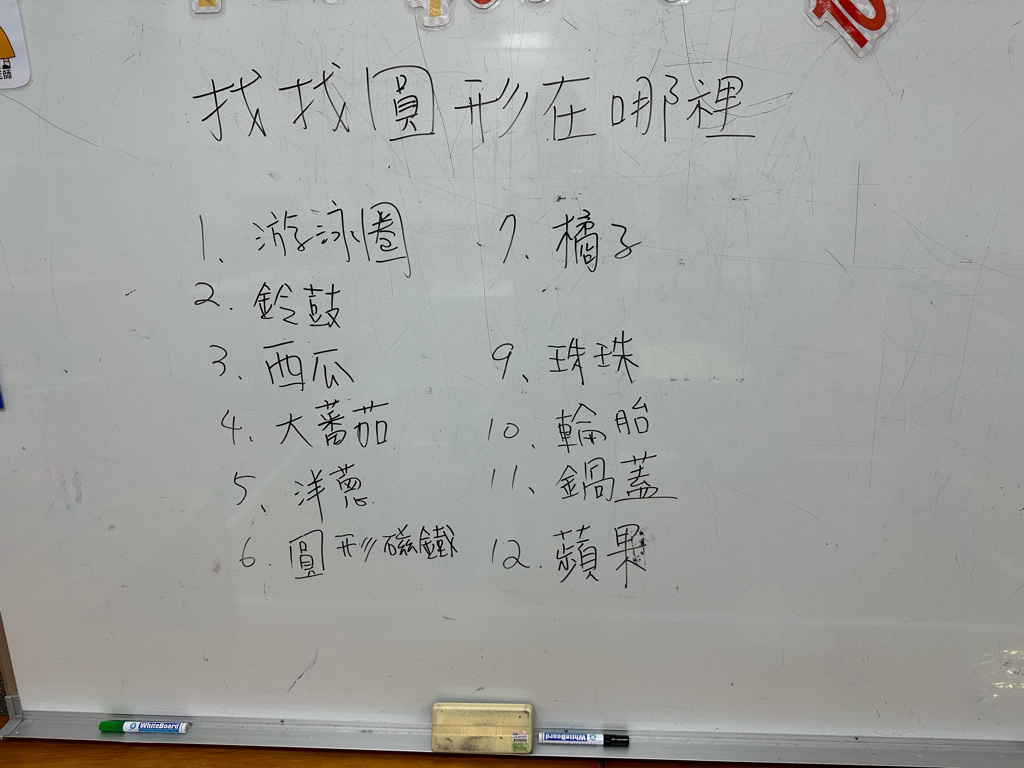 10
老師
找找圓形在哪裡
1、游泳圈
2.鈴鼓
3、西瓜
4、大蕃茄
5、洋蔥
6.圓形磁鐵
7.橘子
9、珠珠
10、輪胎
11、鍋蓋
12.蘋果
WHITEBOARD
WHITEBOARD